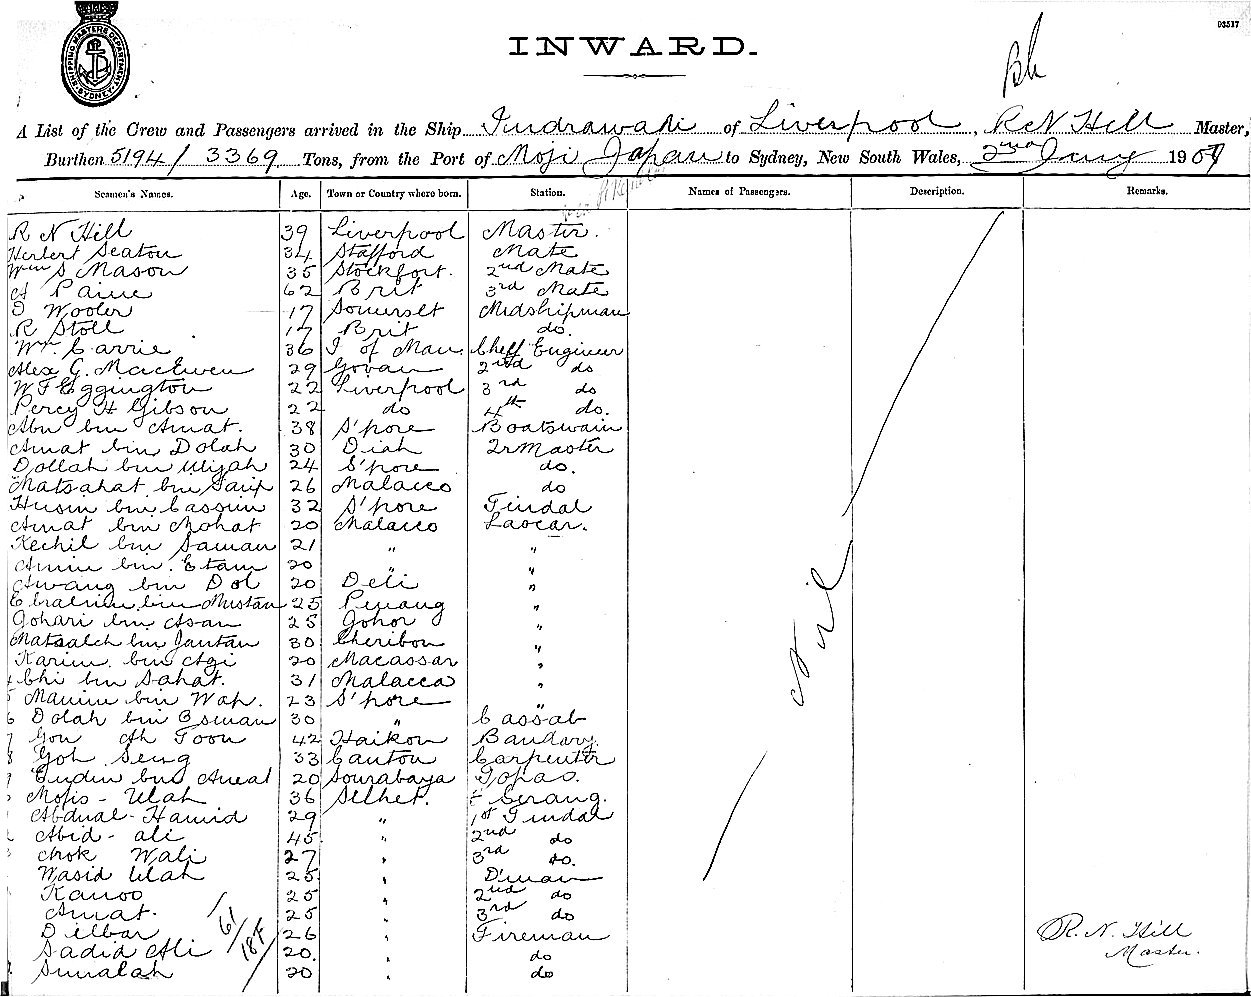 SHIPPING MASTERS DEPARTMENT SYDNEY
03517
INWARD.
A List of the Crew and Passengers arrived in the Ship Indrawadi of Liverpool, R N Hill Master,
Burthen 5194/3369 Tons, from the Port of Moji Japan to Sydney, New South Wales, 2nd Jany 1907
Seamen's Names. Age. Town or Country where born. Station. Names of Passengers. Description. Remarks.
R N Hill 39 Liverpool Master.
Herbert Seaton 34 Stafford Mate
Wm S Mason 35 Stockfort. 2nd Mate
A Paine 62 Brit 3rd Mate
D Wooler 17 Somerset Midshipman
R Stoll 17 Brit do.
Wm Carrie 36 I of Man. Cheff Engineer
Alex G. MacEwen 29 Govan 2nd do
W F Eggington 22 Liverpool 3rd do
Percy H Gibson 22 do 4th do.
Abu bin Amat. 38 S'pore Boatswain
Amat bin Dolah 30 Diah 2r Master
Dollah bin 24 S'pore do.
Matsahat bin Sarip 26 Malacco do
Husin bin Cassim 32 S'pore Tindal
Amat bin Mohat 20 Malacco Lascar.
Kechil bin Saman 21 " "
Amin bin Etam 20 " "
Awang bin Dol 20 Deli "
Ebrahim bin Mustan 25 Penang "
Gohari bin Asan 25 Gohor "
Matsaleh bin Jantan 30 Cheribon "
Karim bin Agi 20 Macassar "
Chi bin Sahat. 31 Malacca "
Manim bin Wap. 23 S'pore "
Dolah bin Osman 30 " Cassab
Gou Ah Toon 42 Haikow Bandary.
Goh Seng 33 Canton Carpenter
Eudin bin Amat 20 Sourabaya Topas.
Mofis - Ulah 36 Selhet. Serang.
Abdual - Hamid 29 " 1st Tindal
Abid - ali 45 " 2nd do
Chok Wali 27 " 3rd do.
Wasid Ulah 25 " D'man
Kanoo 25 " 2nd do
Amat. 25 " 3rd do
Dilbar 26 " Fireman
Sadid Ali 20. " do
Sunalah 20 " do
61/187
Nil
R. N. Hill
Master.